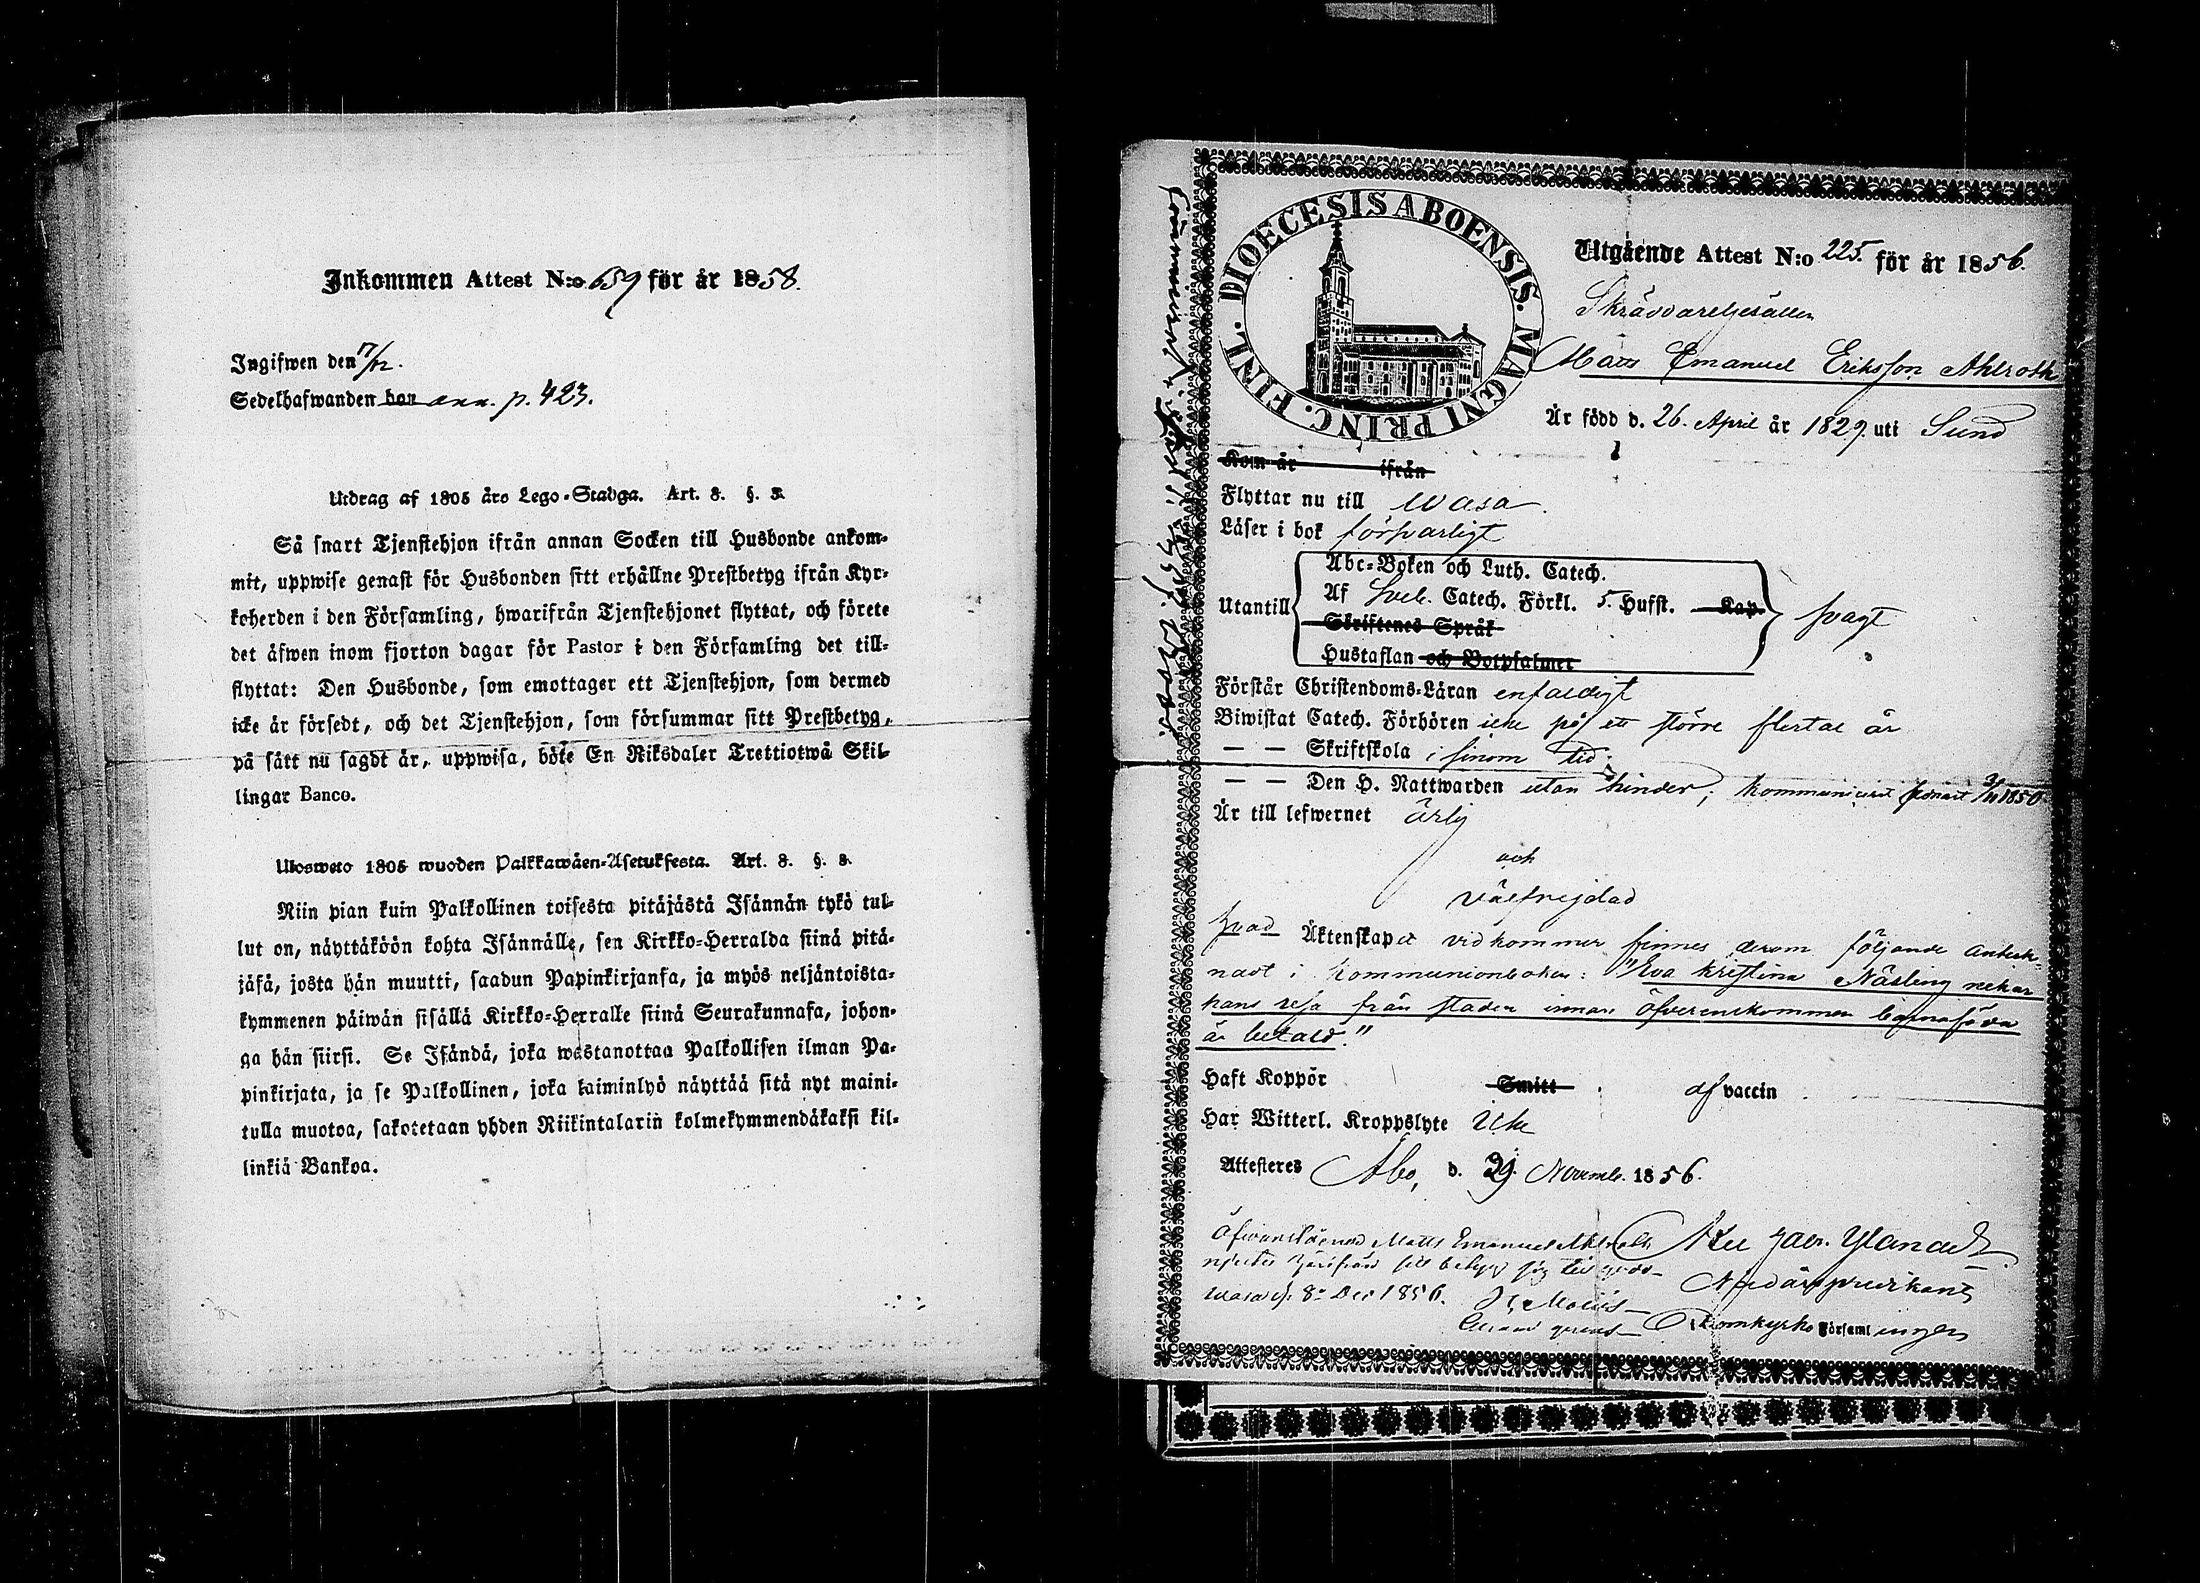 Inkommen Attest N:o 659 för år 1858.
Ingifwen den 7/12.
Sedelhafwanden bor ann. p. 423.
Utdrag af 1805 års Lego-Stadga. Art. 8. §. 3.
Så snart Tjenstehjon ifrån annan Socken till Husbonde ankom-
mit, uppwise genast för Husbonden sitt erhållne Prestbetyg ifrån Kyr-
koherden i den Församling, hwarifrån Tjenstehjonet flyttat, och förete
det äfwen inom fjorton dagar för Pastor i den Församling det till-
flyttat: Den Husbonde, som emottager ett Tjenstehjon, som dermed
icke är försedt, och det Tjenstehjon, som försummar sitt Prestbetyg,
på sätt nu sagdt är, uppwisa, böte En Riksdaler Trettiotwå Skil-
lingar Banco.
Ulosweto 1805 wuoden Palkkawäen-Asetuksesta. Art. 8. §. 3.
Niin pian kuin Palkollinen toisesta pitäjästä Isännän tykö tul-
lut on, näyttäköön kohta Isännälle, sen Kirkko-Herralda siinä pitä-
jäsä, josta hän muutti, saadun Papinkirjansa, ja myös neljäntoista-
kymmenen päiwän sisällä Kirkko-Herralle siinä Seurakunnasa, johon-
ga hän siirsi. Se Isändä, joka wastanottaa Palkollisen ilman Pa-
pinkirjata, ja se Palkollinen, joka laiminlyö näyttää sitä nyt maini-
tulla muotoa, sakotetaan yhden Riikintalarin kolmekymmendäkaksi kil-
linkiä Bankoa.
DIOECESIS ABOENSIS. MAGNI PRINC. FINL.
Utgående Attest N:o 225. för år 1856.
Skräddaregesällen
Matts Emanuel Eriksson Ahlroth
Är född d. 26. April år 1829. uti Sund
Kom år ifrån
Flyttar nu till Wasa.
Läser i bok försvarligt
Abc-Boken och Luth. Catech.
Utantill Af Sveb. Catech. Förkl. 5. Hufst. Kap. svagt
Skriftenes Språk
Hustaflan och Botpsalmer
Förstår Christendoms-Läran enfaldigt
Biwistat Catech. Förhören icke på ett större flertal år
— — Skriftskola i sinom tid
— — Den H. Nattwarden utan hinder; kommunicerat senast 3/11 1850
Är till lefwernet ärlig
och
välfrejdad
hvad Äktenskapet vidkommer finnes derom följande anteck-
nadt i kommunionboken: "Eva Kristina Näsling nekar
hans resa från staden innan öfverenskommen barnaföda
är betald."
Haft Koppor Smitt af vaccin
Har Witterl. Kroppslyte Icke
Attesteres Åbo, d. 29. Novemb. 1856.
Matts Emanuel Ahlroth
Wasa d. 8 Dec 1856.
Domkyrko Församlingen